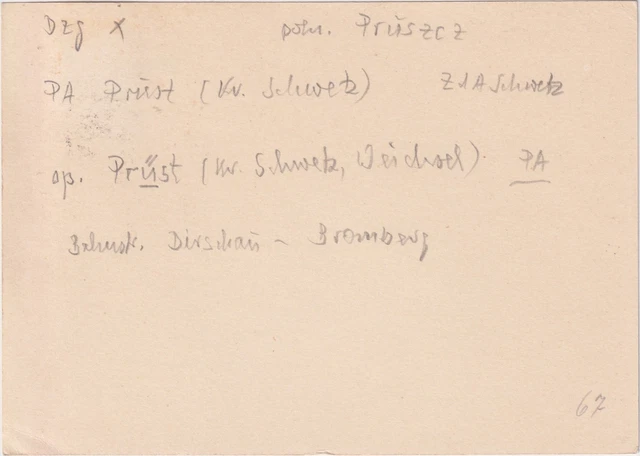 Dzg X poln. Pruszcz
PA Prust (Kr. Schwetz) ZdA Schwetz
op. Prüst (Kr. Schwetz, Weichsel) PA
Bahnstr. Dirschau - Bromberg
67